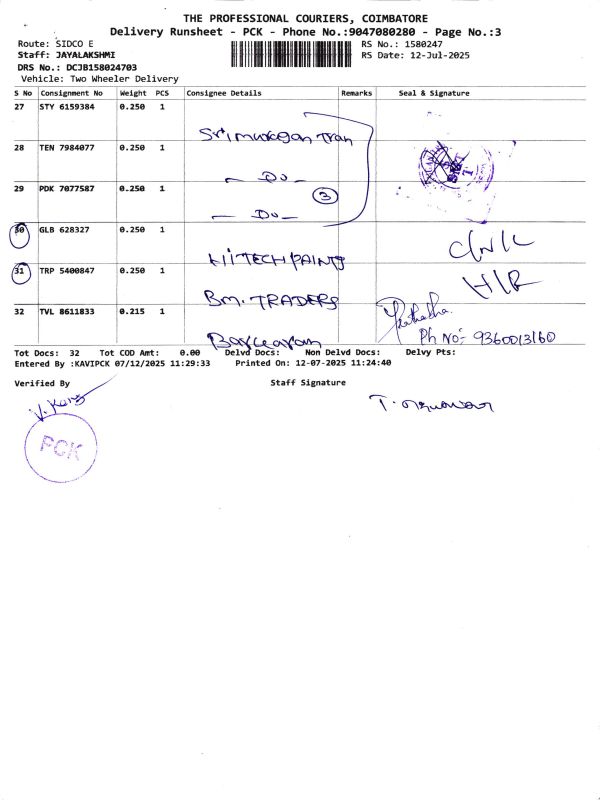 THE PROFESSIONAL COURIERS, COIMBATORE
Delivery Runsheet - PCK - Phone No.:9047080280 - Page No.:3
Route: SIDCO E RS No.: 1580247
Staff: JAYALAKSHMI RS Date: 12-Jul-2025
DRS No.: DCJB158024703
Vehicle: Two Wheeler Delivery
S No Consignment No Weight PCS Consignee Details Remarks Seal & Signature
27 STY 6159384 0.250 1
Sri murugan Tran
28 TEN 7984077 0.250 1
— Do —
29 PDK 7077587 0.250 1
3
— Do —
30 GLB 628327 0.250 1
HITECH PAINTS C/N/L
31 TRP 5400847 0.250 1
BM. TRADERS H/R
32 TVL 8611833 0.215 1
Ph No:- 9360013160
Tot Docs: 32 Tot COD Amt: 0.00 Delvd Docs: Non Delvd Docs: Delvy Pts:
Entered By :KAVIPCK 07/12/2025 11:29:33 Printed On: 12-07-2025 11:24:40
Verified By Staff Signature
PCK